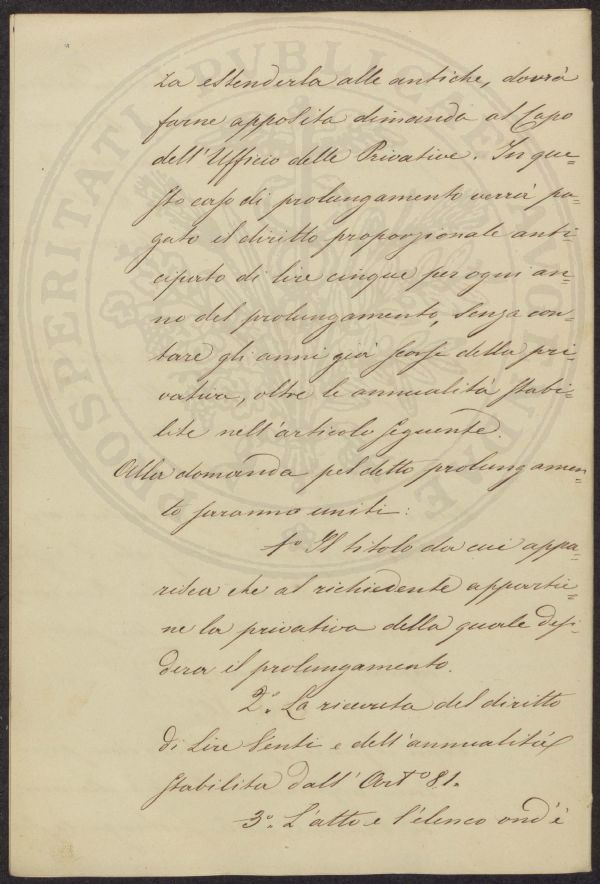 za estenderla alle antiche, dovrà
farne apposita dimanda al Capo
dell'Ufficio delle Privative. In que=
sto caso di prolungamento verrà pa=
gato il diritto proporzionale anti=
cipato di lire cinque per ogni an=
no del prolungamento, senza con=
tare gli anni già scorsi della pri=
vativa, oltre le annualità stabi=
lite nell'articolo seguente.
Alla domanda pel detto prolungamen=
to saranno uniti:
1º Il titolo da cui appa=
risca che al richiedente appartie=
ne la privativa della quale desi=
dera il prolungamento.
2º La ricevuta del diritto
di Lire Venti e dell'annualità
stabilita dall'Artº 81.
3º L'atto e l'elenco ond'è
PROSPERITATI PUBLICAE